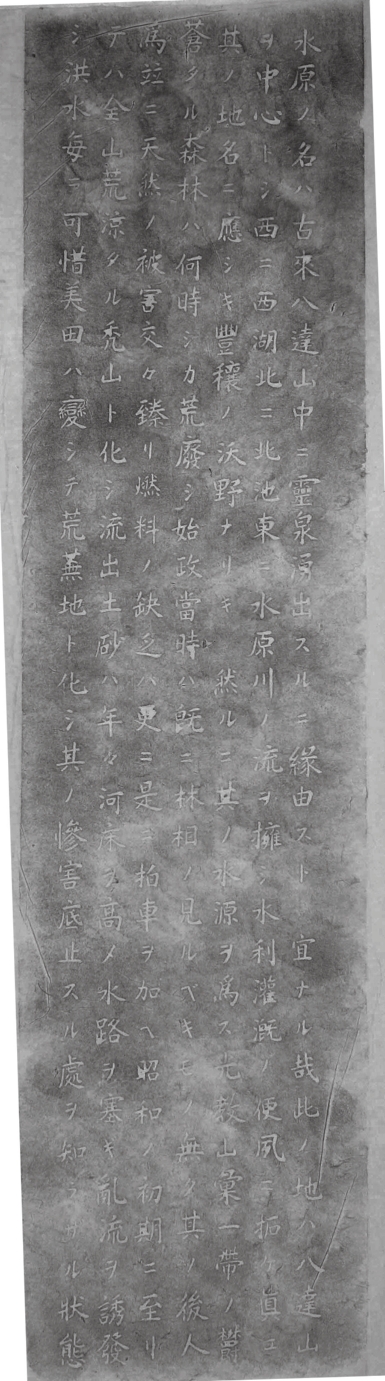 水原ノ名ハ古來八達山中ニ靈泉湧出スルニ緣由スト 宜ナル哉此ノ地ハ八達山
ヲ中心トシ西ニ西湖北ニ北池東ニ水原川ノ流ヲ擁シ水利灌漑ノ便夙ニ拓ケ眞ニ
其ノ地名ニ應シキ豐穰ノ沃野ナリキ 然ルニ其ノ水源ヲ爲ス光敎山彙一帶ノ鬱
蒼タル森林ハ何時シカ荒廢シ始政當時ハ旣ニ林相ノ見ルベキモノ無ク其ノ後人
爲竝ニ天然ノ被害交々臻リ燃料ノ缺乏ハ更ニ是ニ拍車ヲ加ヘ昭和ノ初期ニ至リ
テハ全山荒涼タル禿山ト化シ流出土砂ハ年々河床ヲ高メ水路ヲ塞キ亂流ヲ誘發
シ洪水每ニ可惜美田ハ變シテ荒蕪地ト化シ其ノ慘害底止スル處ヲ知ラサル狀態